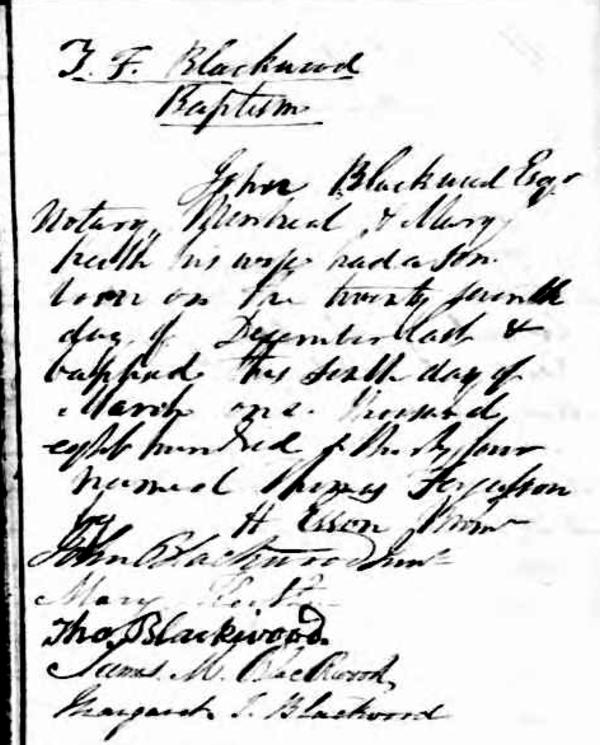 T. F. Blackwood
Baptism
John Blackwood Esqr
Notary, Montreal, & Mary
his wife had a son
born on the twenty seventh
day of December last &
baptized this sixth day of
March one thousand
eight hundred & thirty four
named Thomas Fergusson
by H Esson Minr
John Blackwood Junr
Mary
Tho. Blackwood
James M. Blackwood
Margaret S. Blackwood